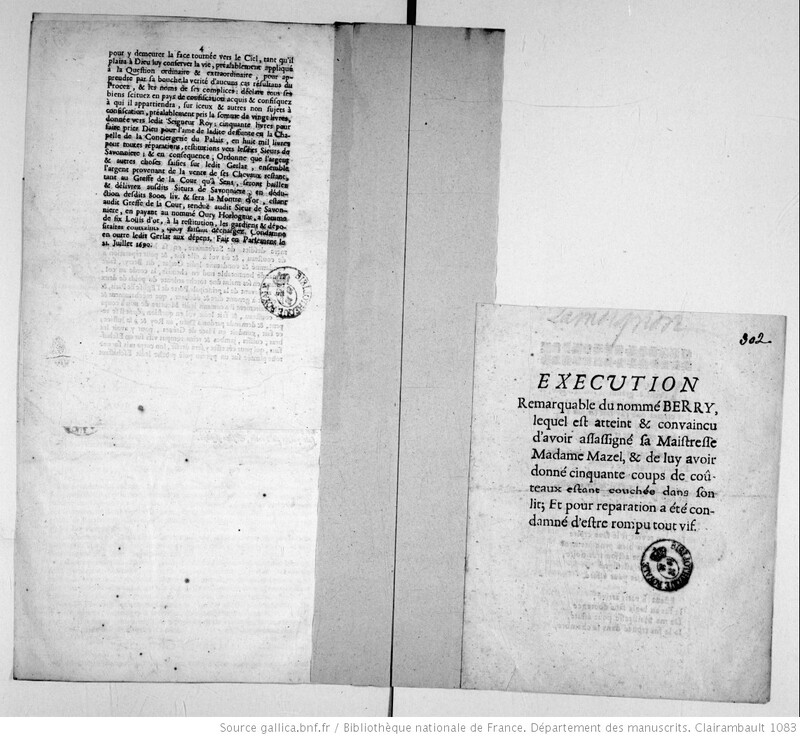 4
pour y demeurer la face tournée vers le Ciel, tant qu'il
plaira à Dieu luy conserver la vie, préalablement appliqué
à la Question ordinaire & extraordinaire, pour ap-
prendre par sa bouche la verité d'aucuns cas résultans du
Procez, & les noms de ses complices: déclare tous ses
biens scituez en pays de confiscation acquis & confisquez
à qui il appartiendra, sur iceux & autres non sujets à
confiscation, préalablement pris la somme de vingt livres,
donnée vers ledit Seigneur Roy; cinquante livres pour
faire prier Dieu pour l'ame de ladite deffunte en la Cha-
pelle de la Conciergerie du Palais, en huit mil livres
pour toutes réparations, restitutions vers lesdits Sieurs de
Savonniere; & en consequence; Ordonne que l'argent
& autres choses saisies sur ledit Gerlat, ensemble
l'argent provenant de la vente de ses Chevaux restant,
tant au Greffe de la Cour qu'à Sens, seront baillez
& délivrez ausdits Sieurs de Savonniere, en dédu-
ction desdits 8000. liv. & sera la Montre d'or, estant
audit Greffe de la Cour, renduë audit Sieur de Savon-
niere, en payant au nommé Oury Horlogeur, la somme
de six Louis d'or, à la restitution, les gardiens & dépo-
sitaires contraints, quoy faisant déchargez. Condamne
en outre ledit Gerlat aux dépens. Fait en Parlement le
21. Juillet 1690.
BIBLIOTHEQUE ROYALE
Lamoignon
302
EXECUTION
Remarquable du nommé BERRY,
lequel est atteint & convaincu
d'avoir assassigné sa Maistresse
Madame Mazel, & de luy avoir
donné cinquante coups de coû-
teaux estant couchée dans son
lit; Et pour reparation a été con-
damné d'estre rompu tout vif.
BIBLIOTHEQUE ROYALE
Source gallica.bnf.fr / Bibliothèque nationale de France. Département des manuscrits. Clairambault 1083